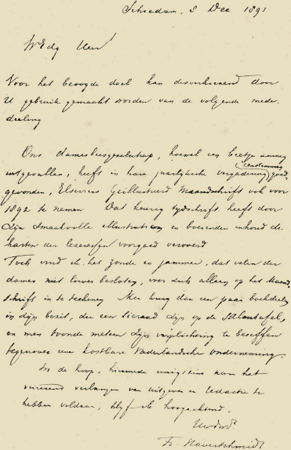 Schiedam, 8 Dec 1891
WEdg Heer
Voor het beoogde doel kan desverkiezend door
U gebruik gemaakt worden van de volgende mede-
deeling
Ons damesleesgezelschap, hoewel een beetje
uitgevallen, heeft in hare jaarlijksche vergadering
gevonden, Elsevier's Geïllustreerd Maandschrift ook voor
1892 te nemen Dat keurig tijdschrift heeft door
zijn smaakvolle illustratiën en boeienden inhoud de
harten der lezeressen voorgoed veroverd
Toch vond ik het zonde en jammer, dat velen der
dames niet liever besloten, voor zich alleen op het Maand-
schrift in te teekenen Men kwam dan een paar boekdeelen
in zijn bezit, die een sieraad zijn op de Salontafel,
en men toonde meteen zijn verplichting te beseffen
tegenover eene kostbare Vaderlandsche onderneming.
In de hoop, hiermede eenigszins aan het
verlangen van uitgever en redactie te
hebben voldaan, blijf ik hoogachtend.
UwEdDw
Fr. Haverschmidt